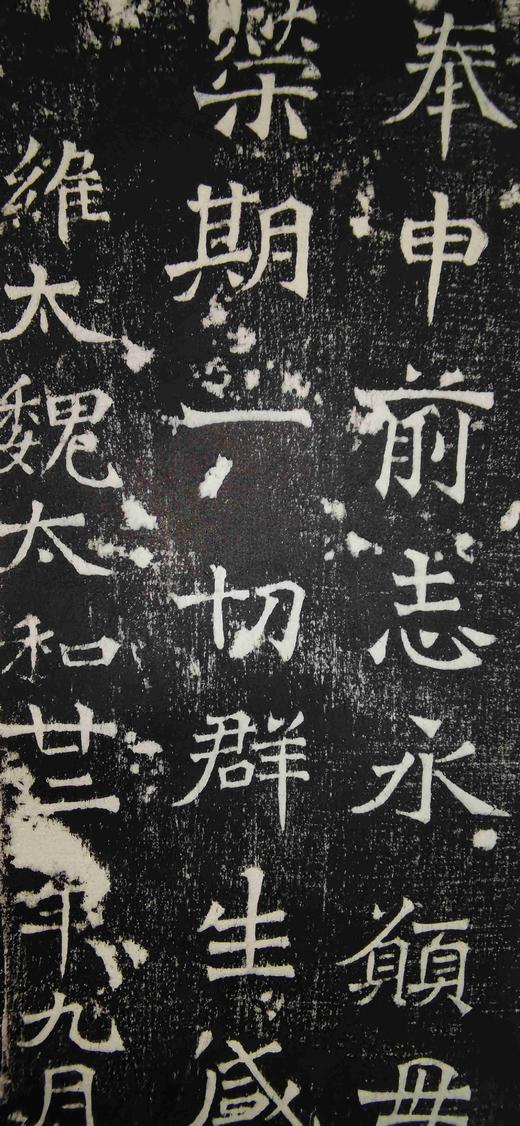 奉申前志永願母
榮期一切群生咸
維大魏太和廿二年九月